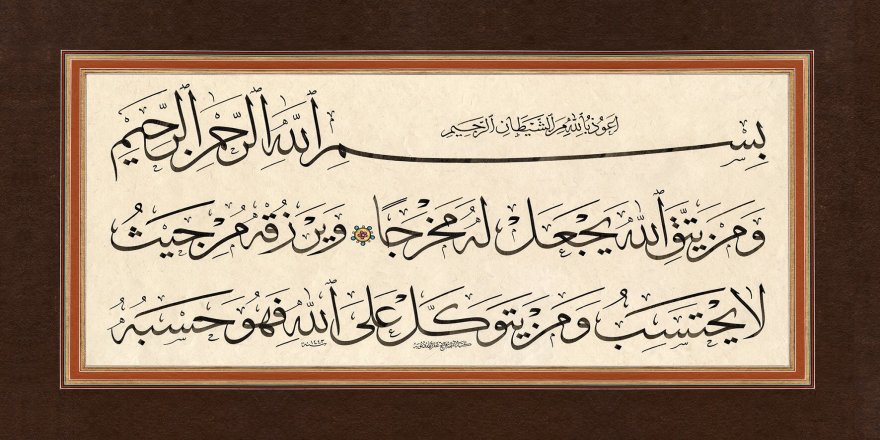 اَعُوذُ بِاللّٰهِ مِنَ الشَّيْطَانِ الرَّجِيمِ
بِسْمِ ٱللّٰهِ ٱلرَّحْمٰنِ ٱلرَّحِيمِ
وَمَنْ يَتَّقِ ٱللّٰهَ يَجْعَلْ لَهُ مَخْرَجًا وَيَرْزُقْهُ مِنْ حَيْثُ
لَا يَحْتَسِبُ وَمَنْ يَتَوَكَّلْ عَلَى ٱللّٰهِ فَهُوَ حَسْبُهُ